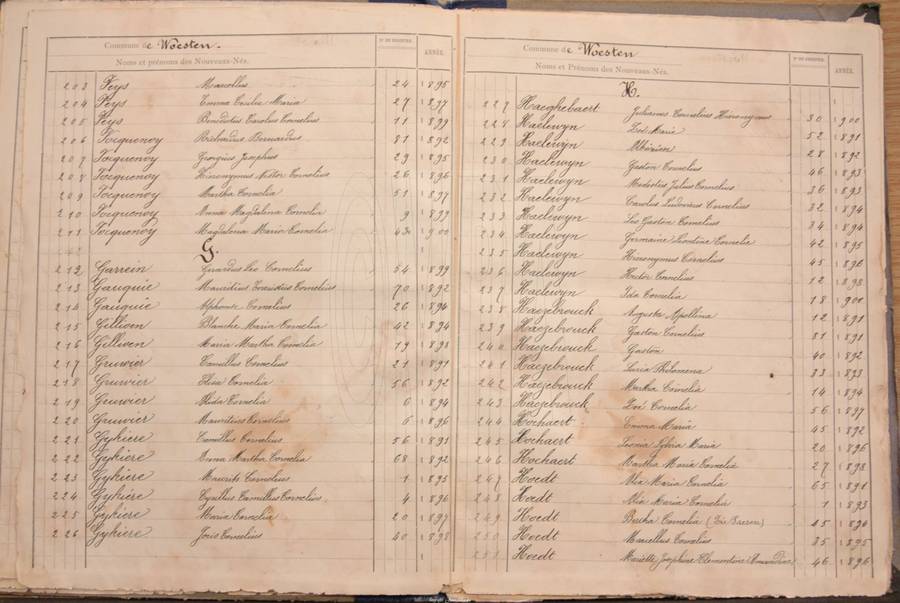 Commune de Woesten.
Nº DU REGISTRE.
ANNÉE.
Noms et prénoms des Nouveaux-Nés.
203 Feys Marcellus 24 1895
204 Feys Emma Cecilia Maria 27 1897
205 Feys Benedictus Carolus Cornelius 11 1899
206 Focquenoy Bernardus 81 1892
207 Focquenoy Georgius Josephus 29 1895
208 Focquenoy Hieronymus Nestor Cornelius 26 1896
209 Focquenoy Martha Cornelia 51 1897
210 Focquenoy Maria Magdalena Cornelia 9 1899
211 Focquenoy Magdalena Maria Cornelia 43 1900
G.
212 Garrein Girardus Leo Cornelius 54 1899
213 Gauquie Mauritius Cornelius 70 1892
214 Gauquie Alphonse Cornelius 26 1894
215 Gillioen Blanche Maria Cornelia 42 1894
216 Gillioen Maria Martha Cornelia 19 1898
217 Gruwier Camillus Cornelius 21 1891
218 Gruwier Elisa Cornelia 56 1892
219 Gruwier Alida Cornelia 6 1894
220 Gruwier Mauritius Cornelius 6 1896
221 Gykiere Camillus Cornelius 56 1891
222 Gykiere Anna Martha Cornelia 68 1892
223 Gykiere Maurits Cornelius 1 1895
224 Gykiere Cyrillus Camillus Cornelius 4 1896
225 Gykiere Maria Cornelia 20 1897
226 Gykiere Joris Cornelius 40 1898
Commune de Woesten
Nº DU REGISTRE.
ANNÉE.
Noms et Prénoms des Nouveaux-Nés.
H.
227 Haeghebaert Julianus Cornelius Hieronymus 30 1900
228 Haelewyn Zoé Maria 52 1891
229 Haelewyn 28 1892
230 Haelewyn Gaston Cornelius 46 1893
231 Haelewyn Modestus Julius Cornelius 36 1893
232 Haelewyn Carolus Ludovicus Cornelius 32 1894
233 Haelewyn Leo Gaston Cornelius 34 1894
234 Haelewyn Germaine Leontine Cornelia 42 1895
235 Haelewyn Hieronymus Cornelius 45 1896
236 Haelewyn Hector Cornelius 12 1898
237 Haelewyn Ida Cornelia 18 1900
238 Haezebrouck Augusta Apollina 12 1891
239 Haezebrouck Gaston Cornelius 81 1891
240 Haezebrouck Gaston 40 1892
241 Haezebrouck Lucia Philomena 33 1893
242 Haezebrouck Martha Cornelia 14 1894
243 Haezebrouck Zoé Cornelia 56 1897
244 Hochaert Emma Maria 45 1892
245 Hochaert Leonia Sylvia Maria 20 1896
246 Hochaert Martha Maria Cornelia 27 1898
247 Hoedt Alix Maria Cornelia 65 1891
248 Hoedt Alix Maria Cornelia 1 1893
249 Hoedt Bertha Cornelia 45 1894
250 Hoedt Marcellus Cornelius 35 1895
251 Hoedt Mariette Josephine Clementine 46 1896